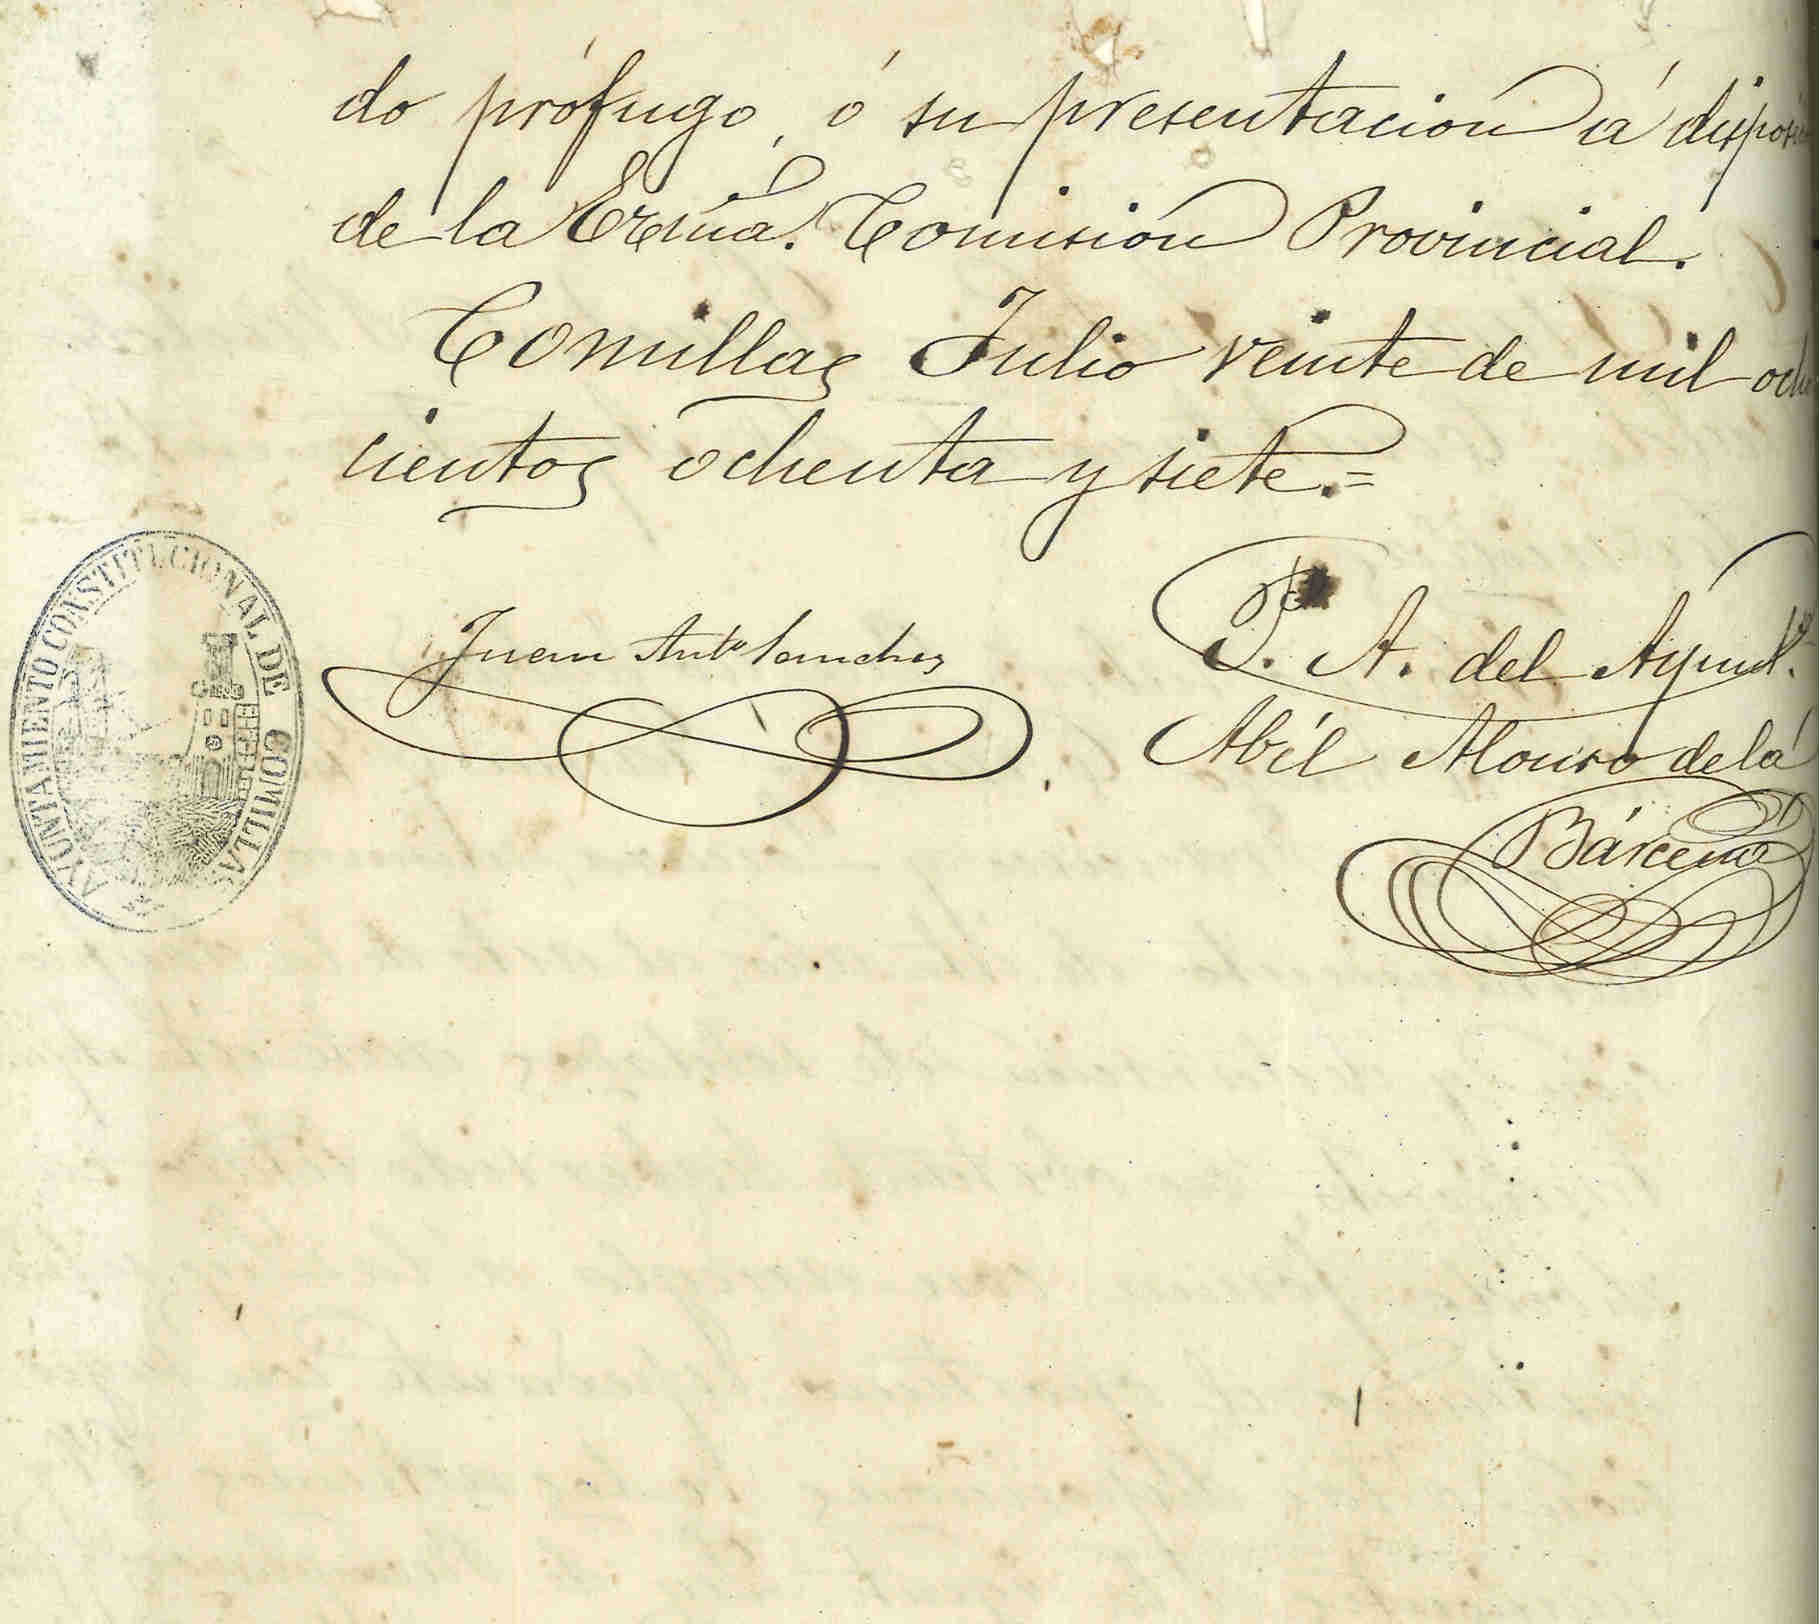 do prófugo, ó su presentación á disposi
de la Excma. Comisión Provincial.
Comillas Julio veinte de mil ocho
cientos ochenta y siete.=
AYUNTAMIENTO CONSTITUCIONAL DE COMILLAS
Juan Anto Sanchez
P. A. del Ayunt.
Abil Alonso de la
Bárcena